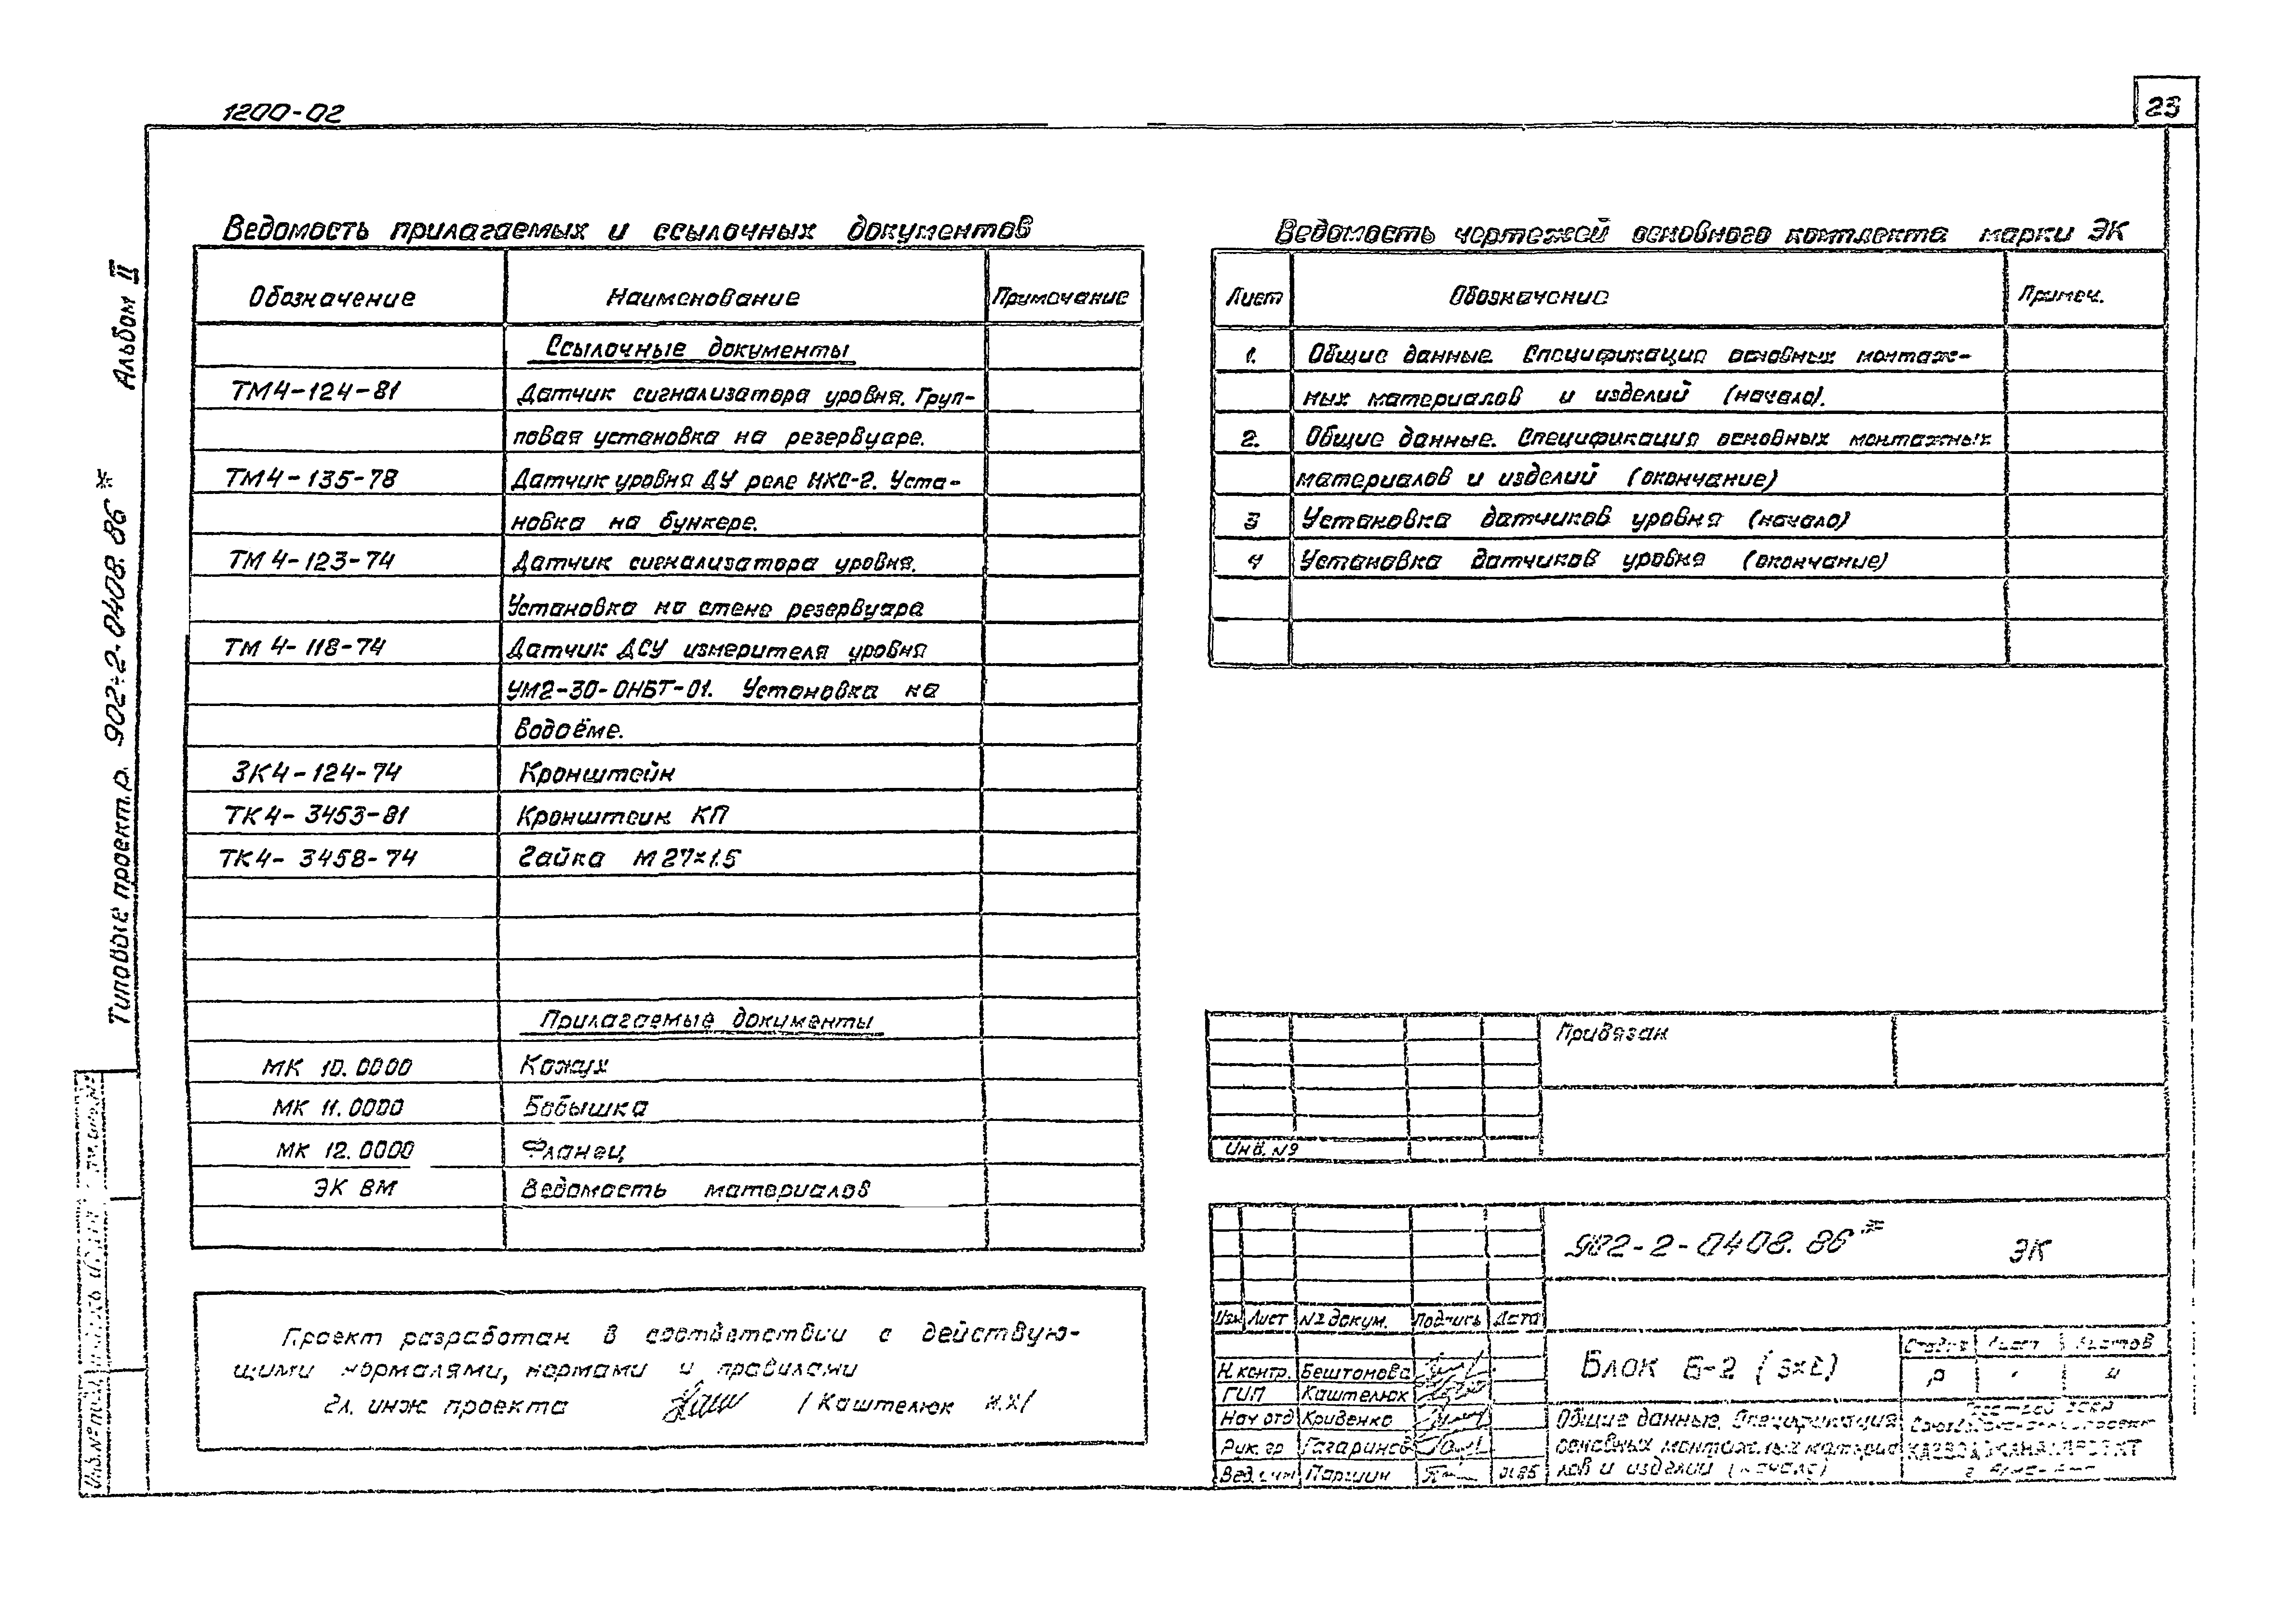 1200-02
23
Альбом II
Типовые проект.р. 902-2-0408.86*
Ведомость прилагаемых и ссылочных документов
Обозначение Наименование Примечание
Ссылочные документы
ТМ4-124-81 Датчик сигнализатора уровня. Груп-
повая установка на резервуаре.
ТМ4-135-78 Датчик уровня ДУ реле ИКС-2. Уста-
новка на бункере.
ТМ4-123-74 Датчик сигнализатора уровня.
Установка на стене резервуара
ТМ4-118-74 Датчик ДСУ измерителя уровня
УМ2-30-ОНБТ-01. Установка на
водоёме.
ЗК4-124-74 Кронштейн
ТК4-3453-81 Кронштейн КП
ТК4-3458-74 Гайка М27×1.5
Прилагаемые документы
МК 10.0000 Кожух
МК 11.0000 Бобышка
МК 12.0000 Фланец
ЭК ВМ Ведомость материалов
Проект разработан в соответствии с действую-
щими нормалями, нормами и правилами
Гл. инж проекта /Каштелюк И.Х/
Ведомость чертежей основного комплекта марки ЭК
Лист Обозначение Примеч.
1. Общие данные. Спецификация основных монтаж-
ных материалов и изделий (начало).
2. Общие данные. Спецификация основных монтажных
материалов и изделий (окончание)
3 Установка датчиков уровня (начало)
4 Установка датчиков уровня (окончание)
Привязан
Инв. №
902-2-0408.86* ЭК
Изм Лист № докум. Подпись Дата
Н. контр. Бештонова
ГИП Каштелюк
Нач отд Кривенко
Рук. гр Гагаринов
Вед. инж Паршин
Блок Б-2
Стадия Лист Листов
Р
Общие данные. Спецификация
основных монтажных материа
лов и изделий (начало)
Госстрой СССР
КАЗВОДОКАНАЛПРОЕКТ
Инв. № подл.